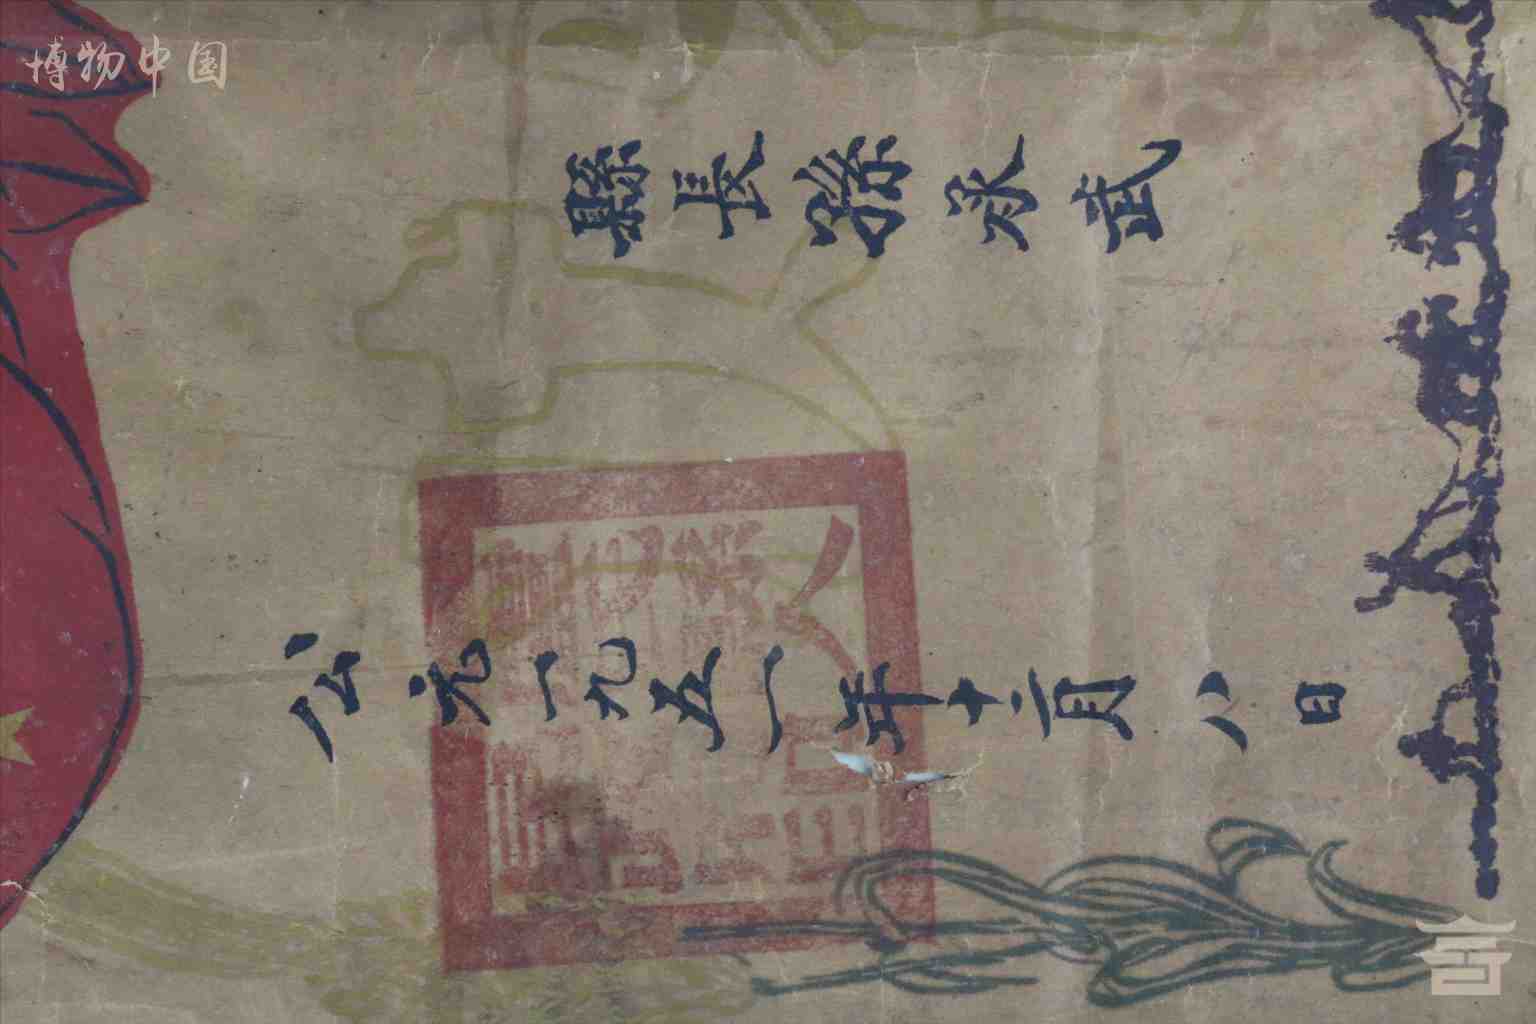 博物中国
縣長孫永武
公元一九五一年十二月八日